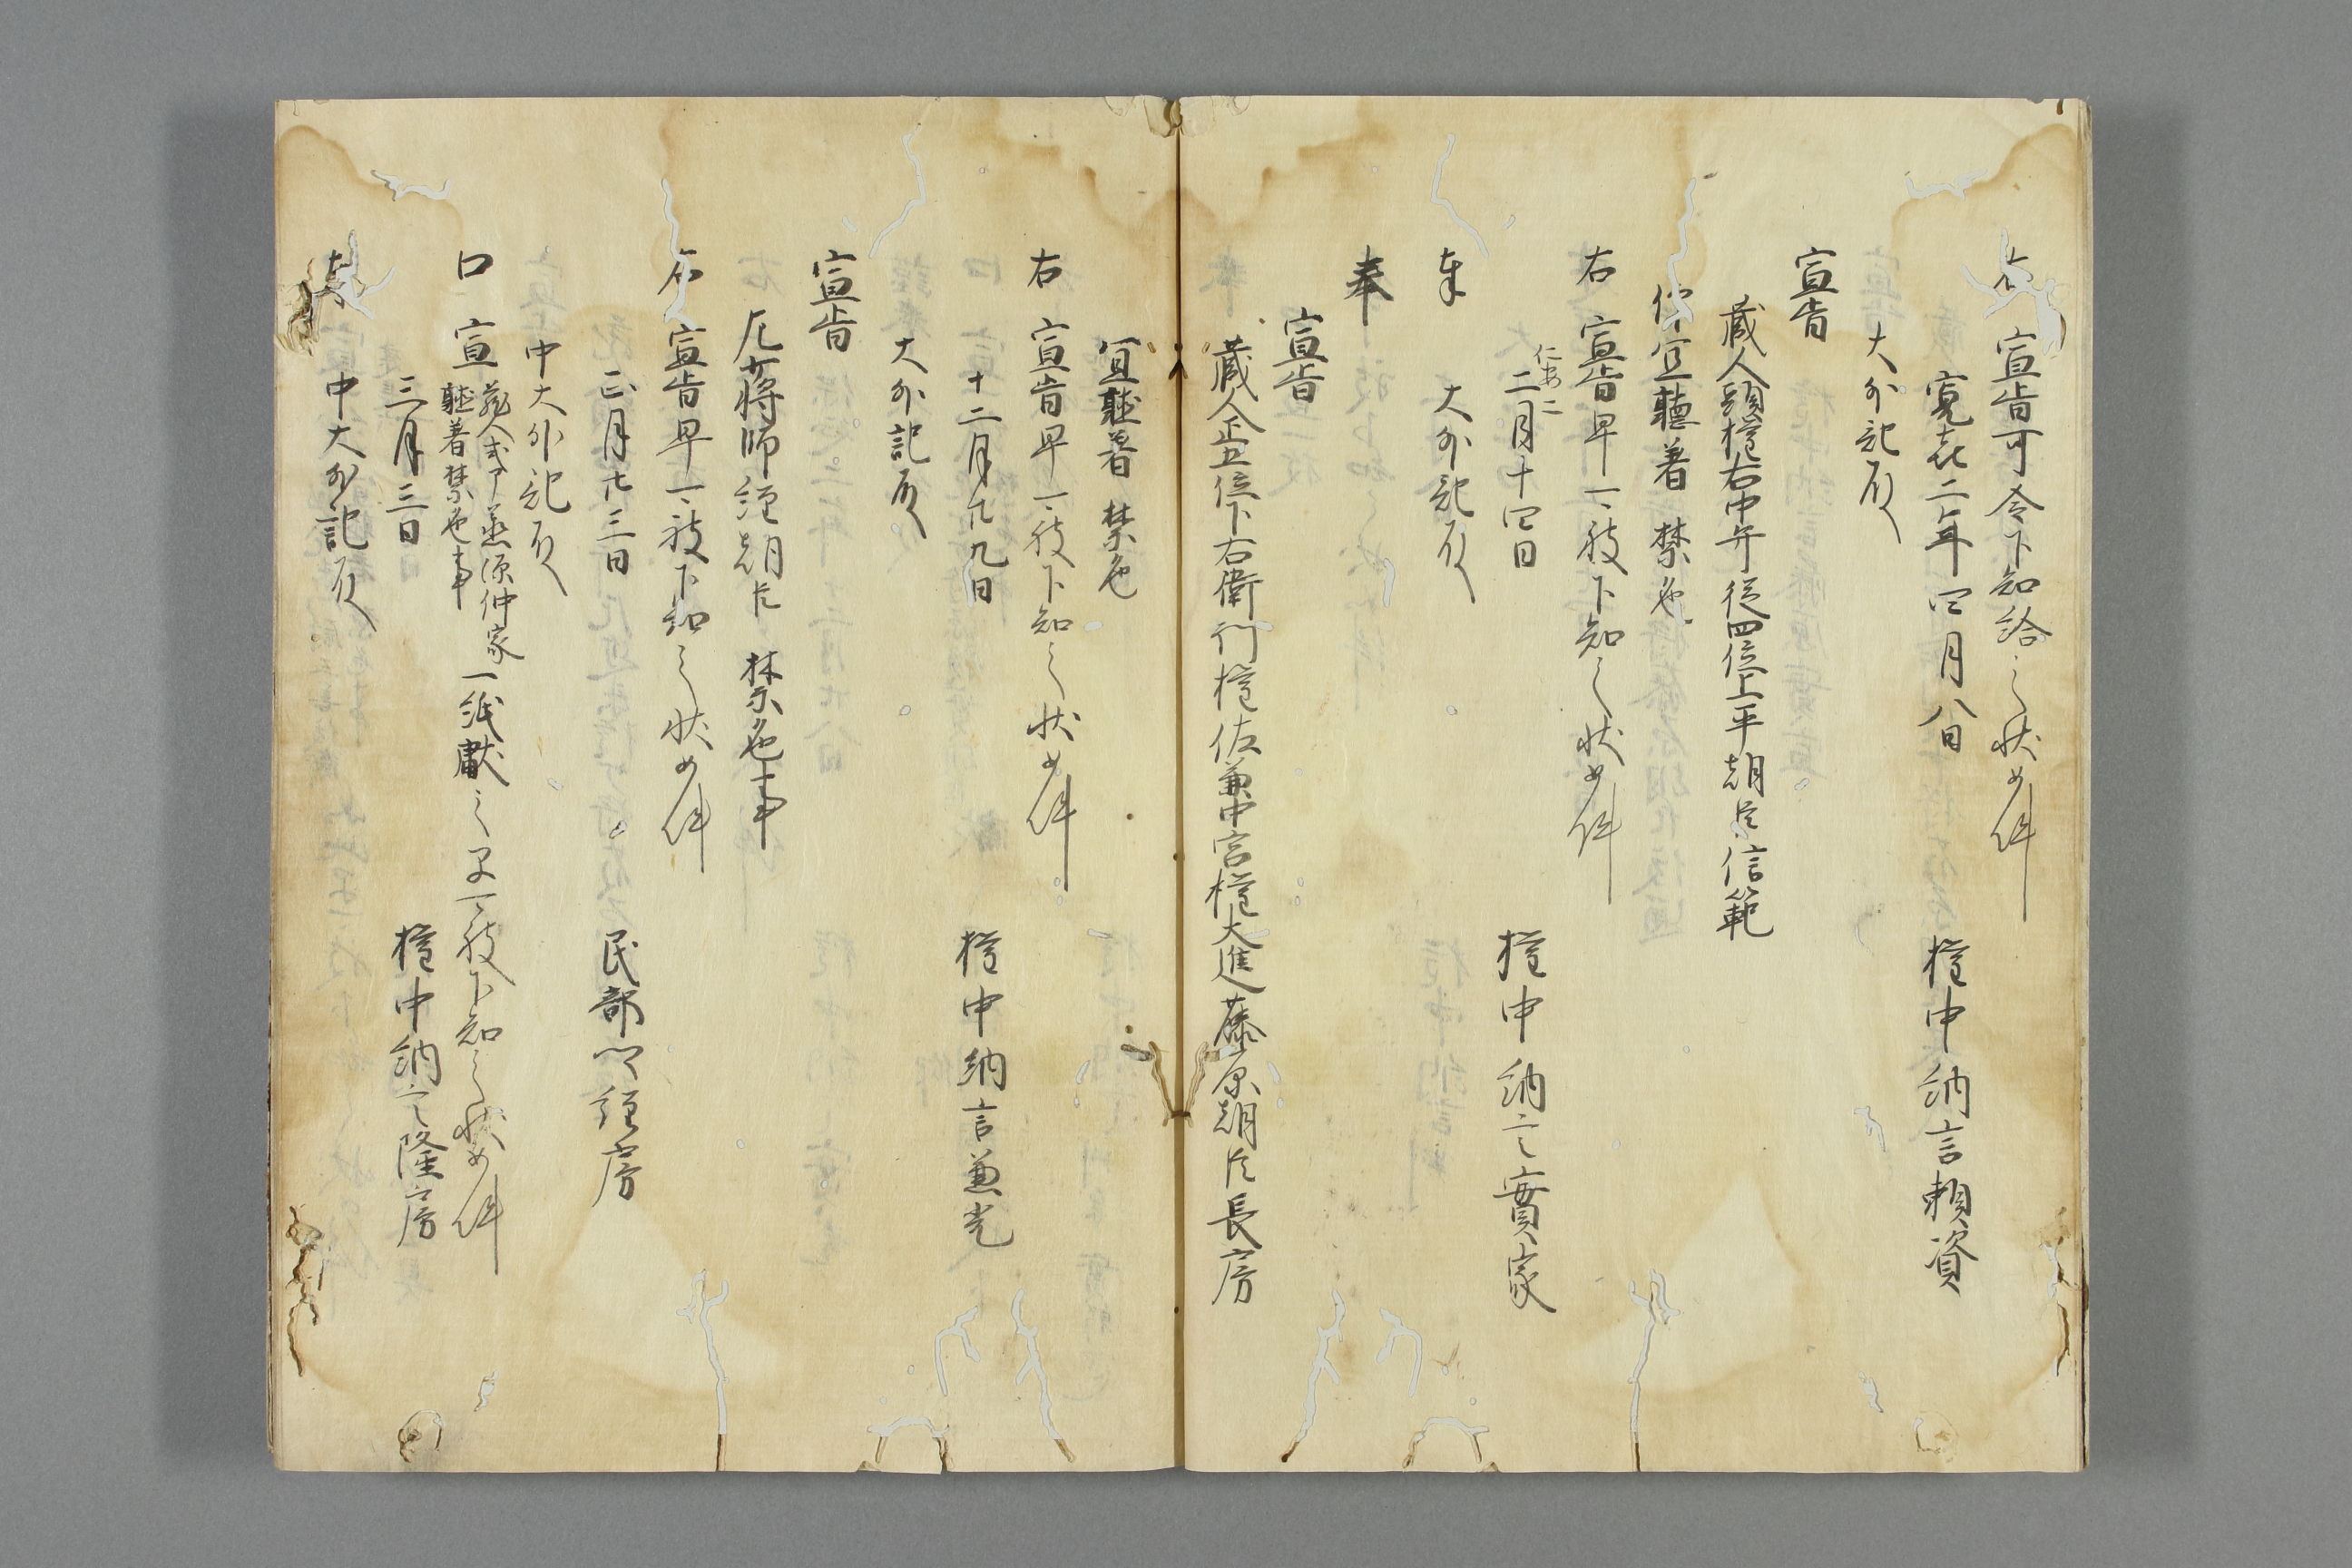 右　宣旨可令下知給之状如件
寛喜二年四月八日　権中納言頼資
大外記殿
宣旨
蔵人頭権右中弁従四位上平朝臣信範
宜聴着　禁色
右　宣旨早可被下知之状如件
仁安二
二月十四日　権中納言實家
奉　大外記殿
奉
宣旨
蔵人正五位下右衛門権佐兼中宮権大進藤原朝臣長房
宜聴着　禁色
右　宣旨早可被下知之状如件
十二月廿九日　権中納言兼光
大外記殿
宣旨
左少将師経朝臣　禁色事
右　宣旨早可被下知之状如件
正月廿三日　民部卿経房
中大外記殿
口　宣　蔵人式部丞源仲家
聴着禁色事
一紙献之早可被下知之状如件
三月三日　権中納言隆房
奉　中大外記殿